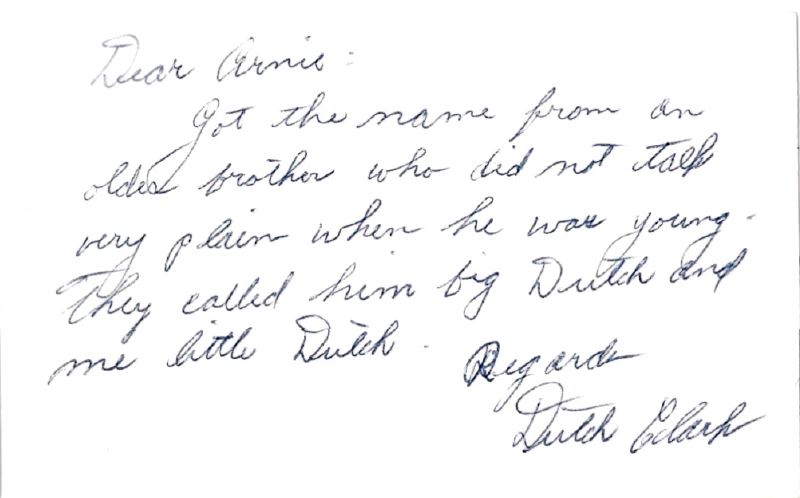 Dear Arnie:
Got the name from an
older brother who did not talk
very plain when he was young.
They called him big Dutch and
me little Dutch.
Regards
Dutch Clark